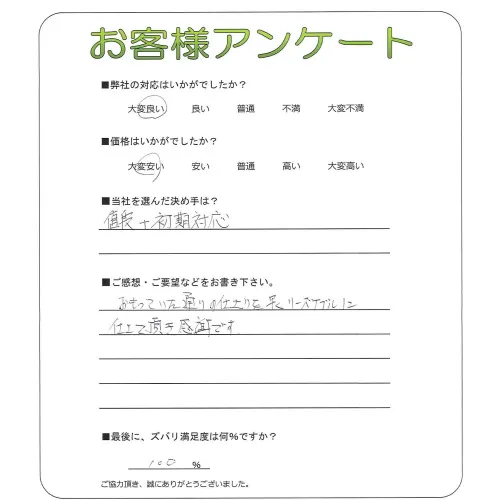 お客様アンケート
■弊社の対応はいかがでしたか？
大変良い 良い 普通 不満 大変不満
■価格はいかがでしたか？
大変安い 安い 普通 高い 大変高い
■当社を選んだ決め手は？
値段＋初期対応
■ご感想・ご要望などをお書き下さい。
おもっていた通りの仕上りを リーズナブルに
仕上て頂き感謝です。
■最後に、ズバリ満足度は何%ですか？
100 %
ご協力頂き、誠にありがとうございました。